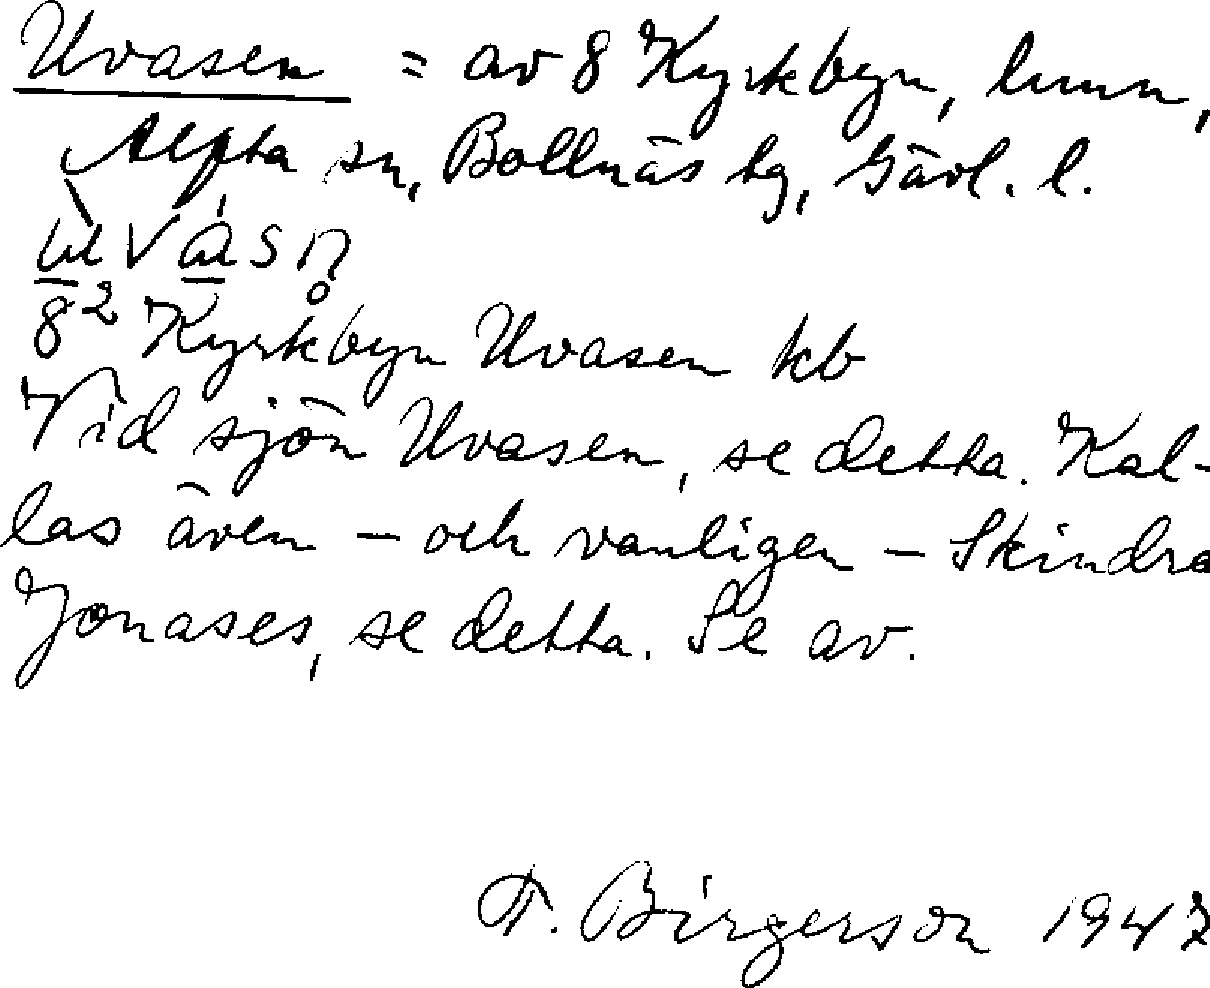 Uvasen = av 8 Kyrkbyn, hmn,
Alfta sn, Bollnäs tg, Gävl. l.
8² Kyrkbyn Uvasen kb
Vid sjön Uvasen, se detta. Kal-
las även – och vanligen – Skindra
Jonases, se detta. Se av.
F. Birgerson 1947